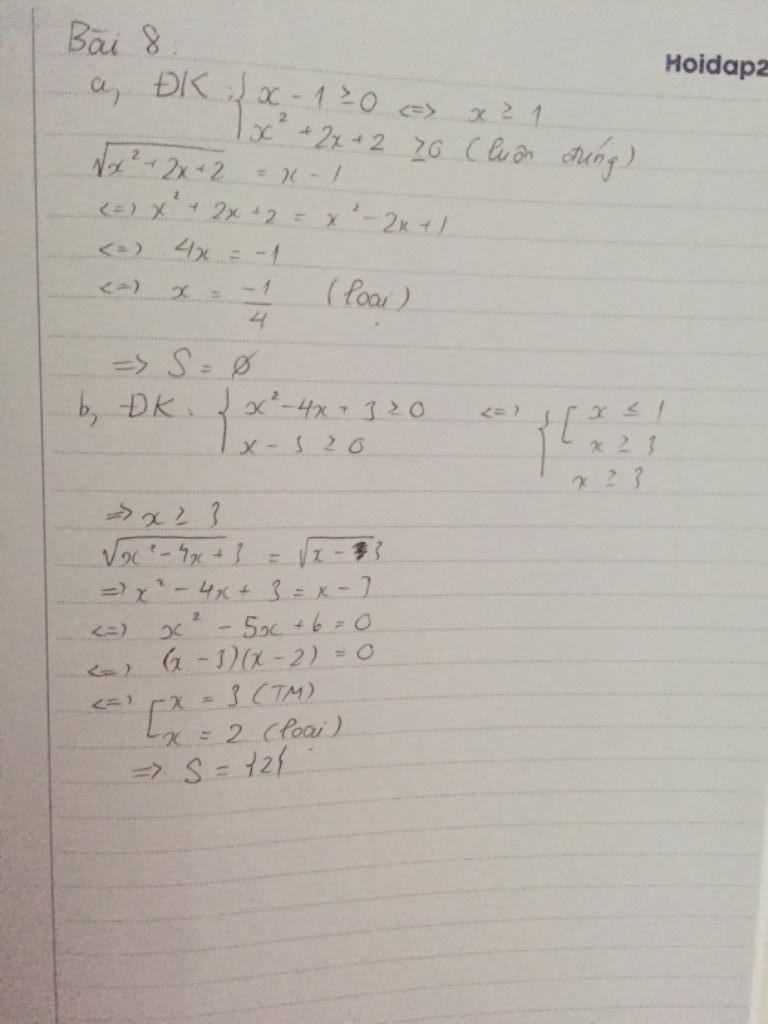 Bài 8.
Hoidap2
a, ĐK: { x - 1 ≥ 0 <=> x ≥ 1
x² + 2x + 2 ≥ 0 (luôn đúng)
√(x² + 2x + 2) = x - 1
<=> x² + 2x + 2 = x² - 2x + 1
<=> 4x = -1
<=> x = -1/4 (loại)
=> S = ∅
b, ĐK: { x² - 4x + 3 ≥ 0 <=> { [ x ≤ 1
x - 3 ≥ 0 x ≥ 3
x ≥ 3
=> x ≥ 3
√(x² - 4x + 3) = √(x - 3)
=> x² - 4x + 3 = x - 3
<=> x² - 5x + 6 = 0
<=> (x - 3)(x - 2) = 0
<=> [ x = 3 (TM)
x = 2 (loại)
=> S = {2}